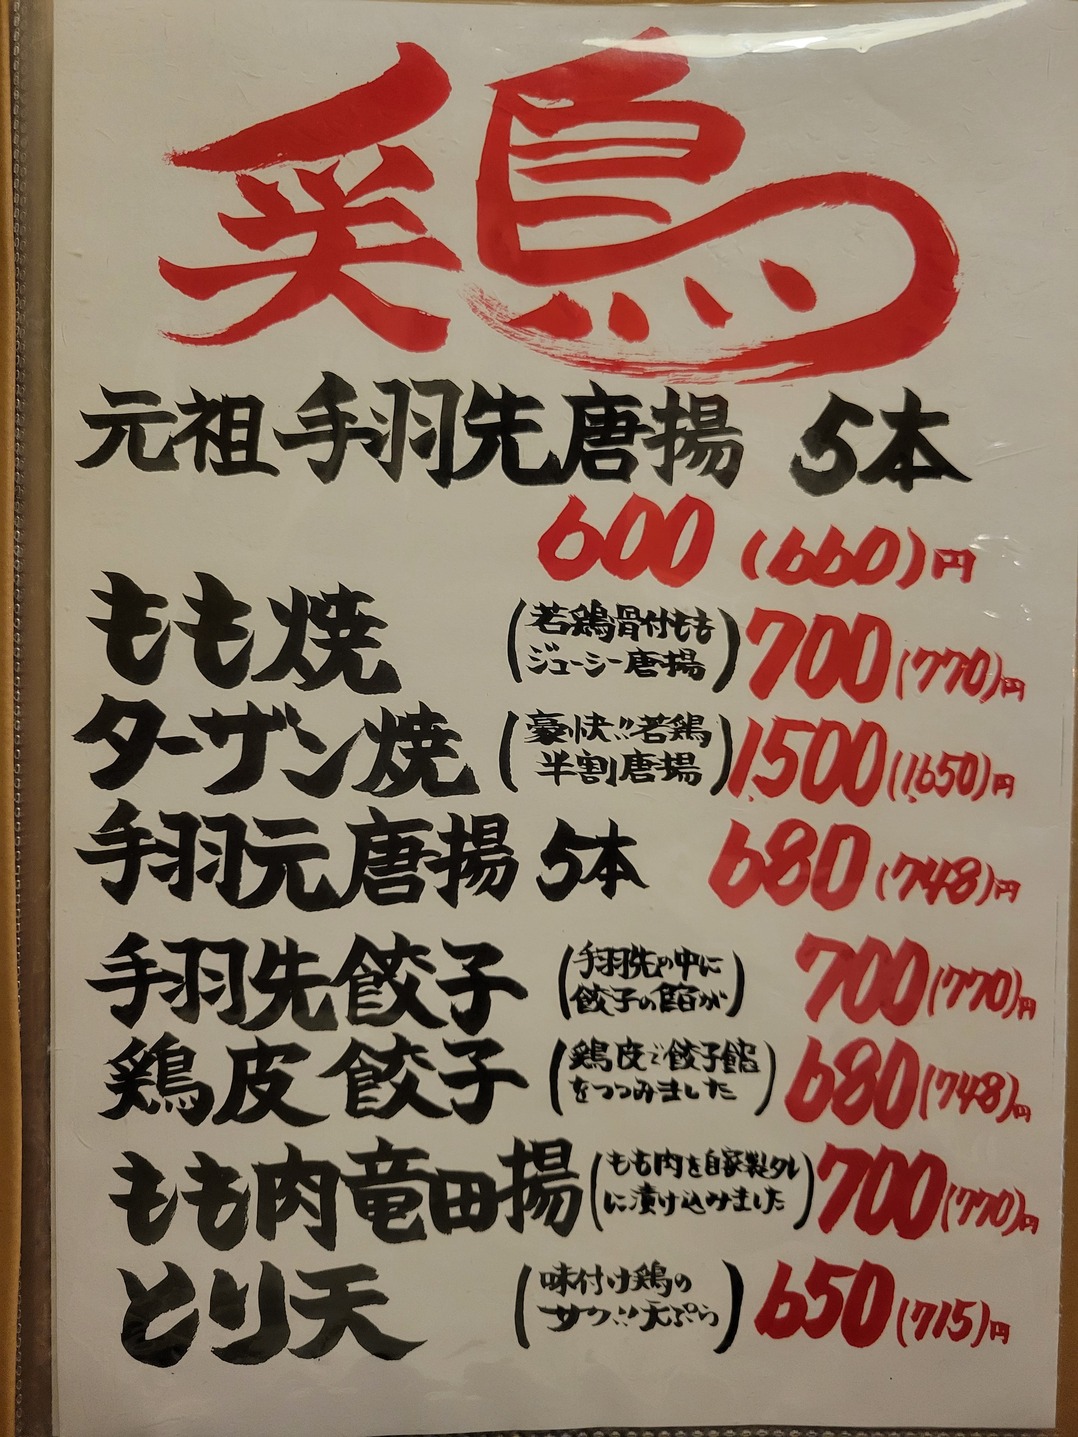 鶏
元祖手羽先唐揚 5本
600 (660)円
もも焼 (若鶏骨付もも
ジューシー唐揚) 700(770)円
ターザン焼 (豪快!!若鶏
半割唐揚) 1,500(1,650)円
手羽元唐揚 5本 680(748)円
手羽先餃子 (手羽先の中に
餃子の餡が) 700(770)円
鶏皮餃子 (鶏皮で餃子餡
をつつみました) 680(748)円
もも肉竜田揚 (もも肉を自家製タレ
に漬け込みました) 700(770)円
とり天 (味付け鶏の
サク!!天ぷら) 650(715)円